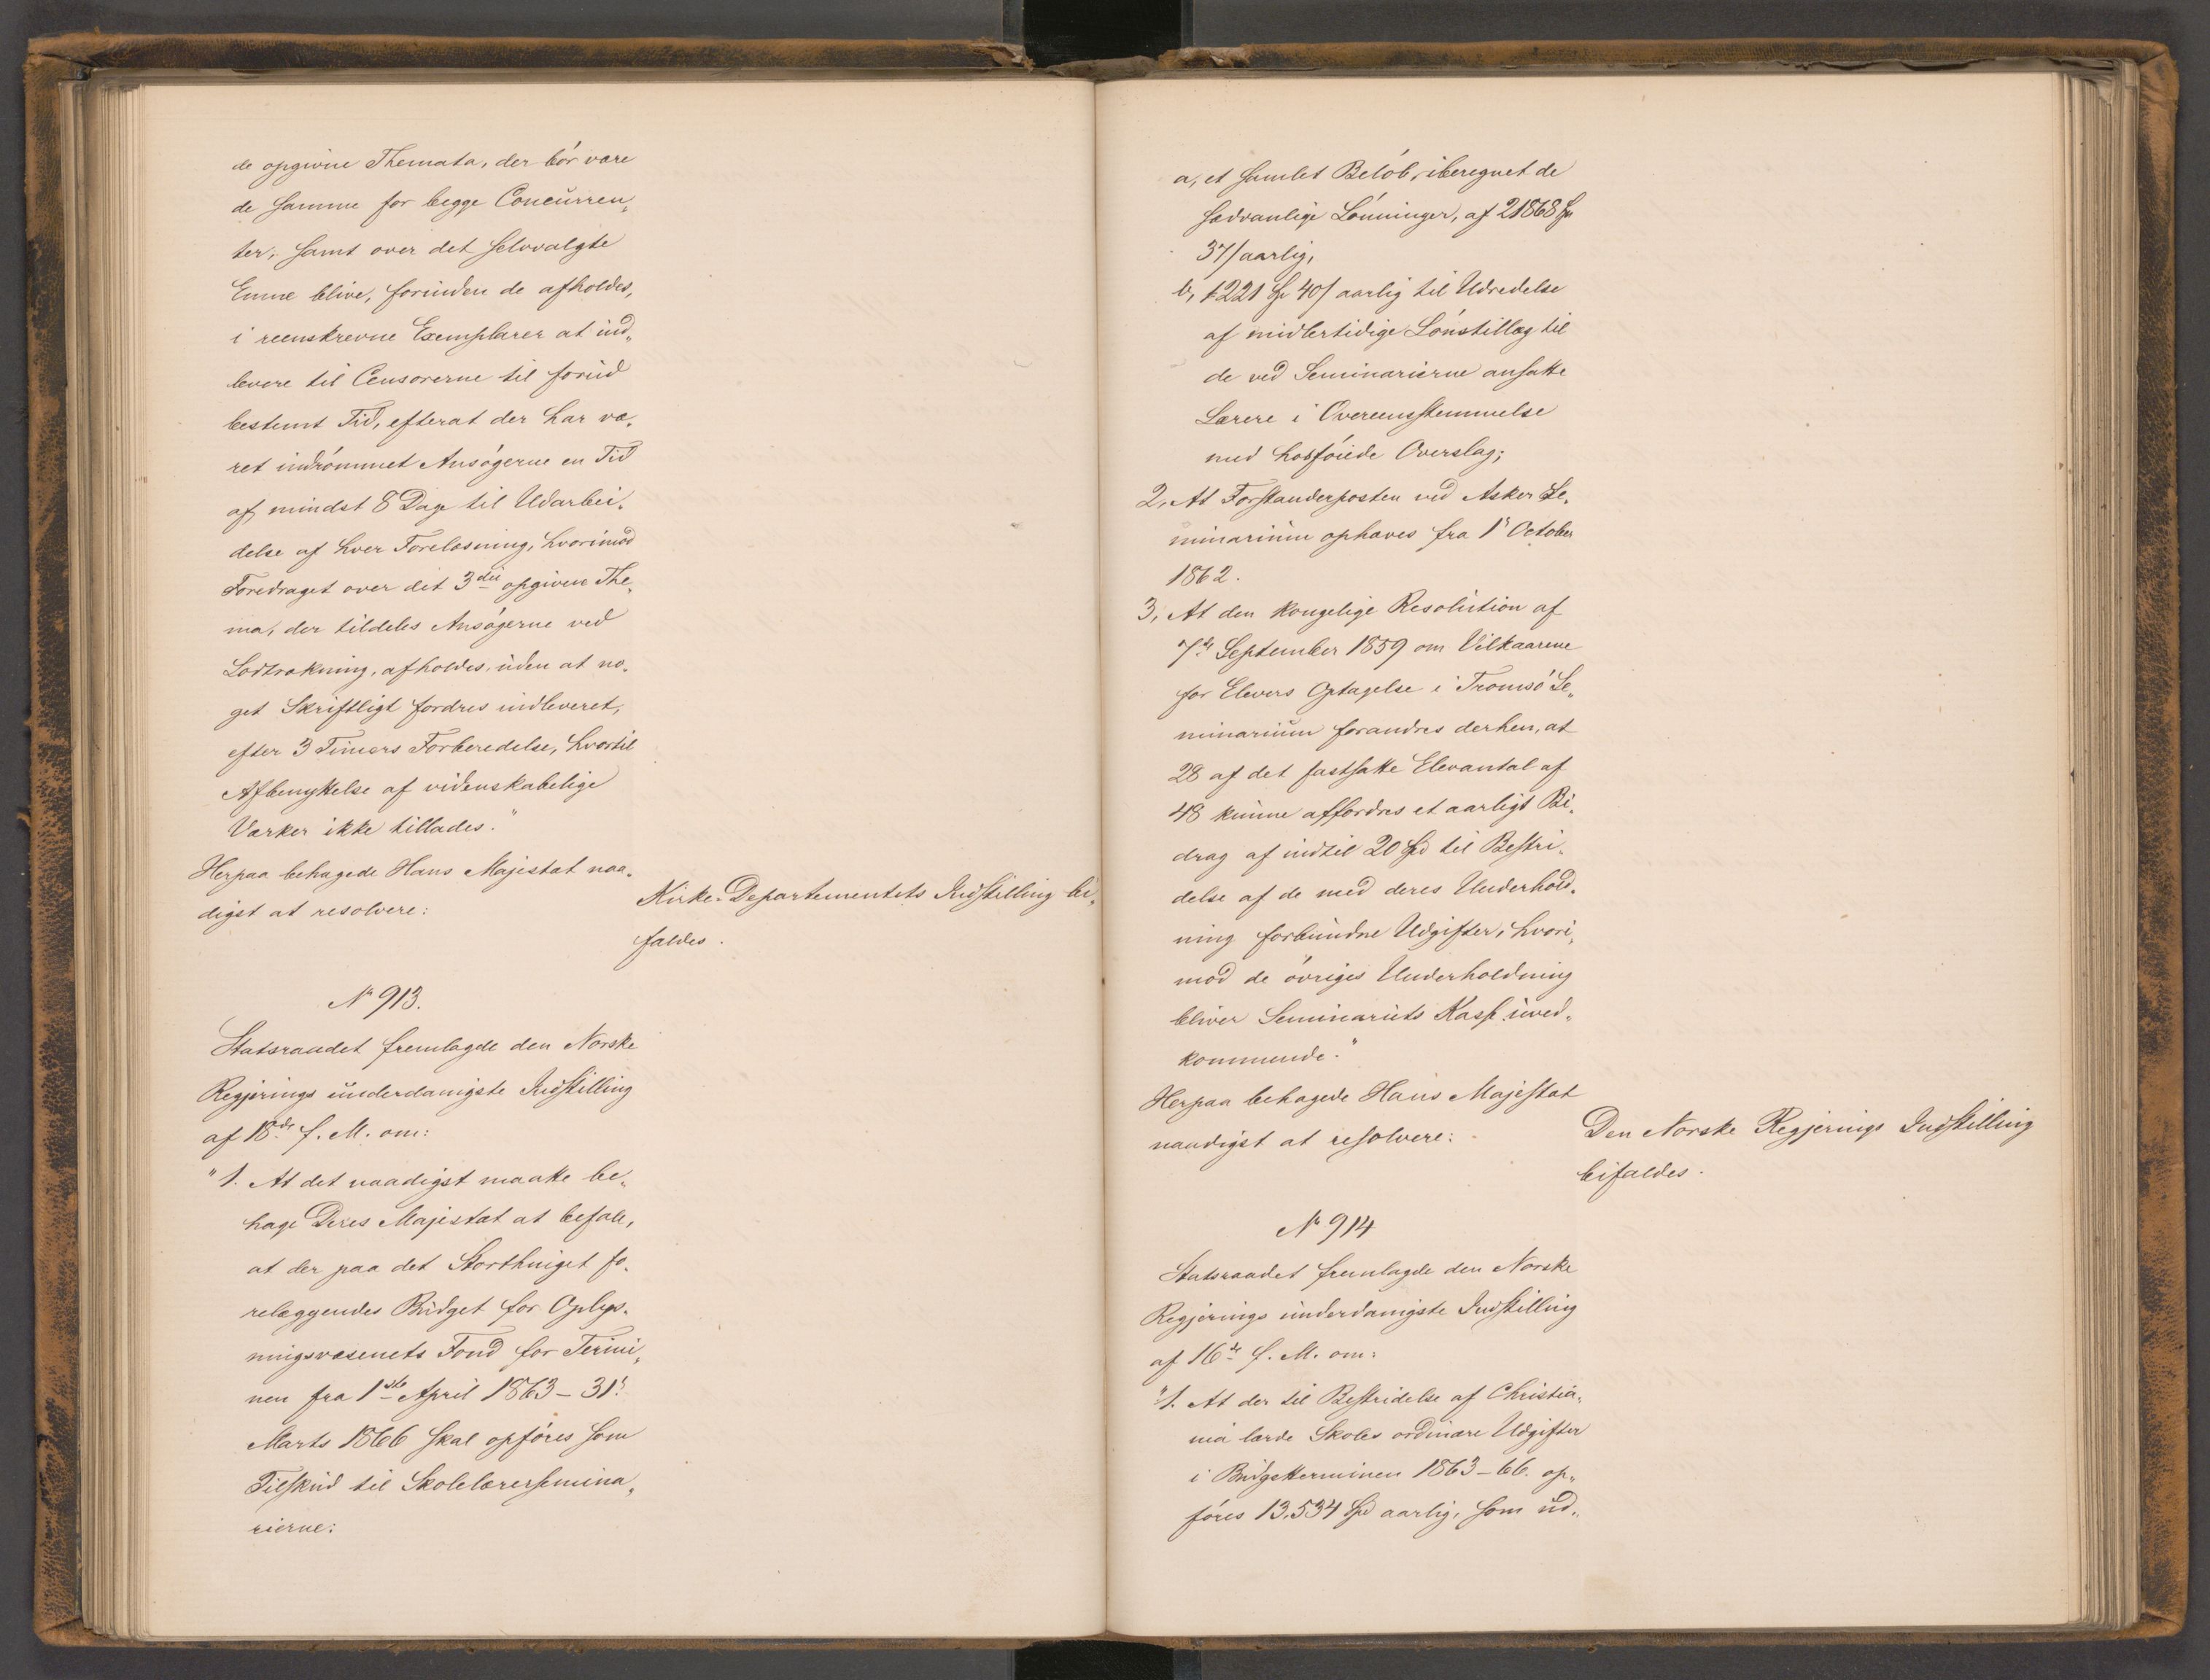 de opgivne Themata, der bør være
de samme for begge Concurren„
ter, samt over det selvvalgte
Emne blive, forinden de afholdes,
i reenskrevne Exemplarer at ind„
levere til Censorerne til forud
bestemt Tid, efterat der har væ„
ret indrømmet Ansøgerne en Tid
af mindst 8 Dage til Udarbei„
delse af hver Forelæsning, hvorimod
Foredraget over det 3die opgivne The„
ma, der tildeles Ansøgerne ved
Lodtrækning, afholdes, uden at no„
get Skriftligt fordres indleveret,
efter 3 Timers Forberedelse, hvortil
Afbenyttelse af videnskabelige
Værker ikke tillades."
Herpaa behagede Hans Majestæt naa„
digst at resolvere:
Kirke-Departementets Indstilling bi„
faldes.
No 913.
Statsraadet fremlagde den Norske
Regjerings underdanigste Indstilling
af 18de f. M. om:
"1. At det naadigst maatte be„
hage Deres Majestæt at befale,
at der paa det Storthinget fo„
relæggendes Budget for Oplys„
ningsvæsenets Fond for Termi„
nen fra 1ste April 1863 – 31s
Marts 1866 skal opføres som
Tilskud til Skolelærersemina„
rierne:
a, et samlet Beløb, iberegnet de
sædvanlige Lønninger, af 21868 Spd
37/ aarlig,
b, 1221 Spd 40/ aarlig til Udredelse
af midlertidige Lønstillæg til
de ved Seminarierne ansatte
Lærere i Overeensstemmelse
med hosføiede Overslag;
2, At Forstanderposten ved Asker Se„
minarium ophæves fra 1s October
1862.
3, At den kongelige Resolution af
7de September 1859 om Vilkaarene
for Elevers Optagelse i Tromsø Se„
minarium forandres derhen, at
28 af det fastsatte Elevantal af
48 kunne affordres et aarligt Bi„
drag af indtil 20 Spd til Bestri„
delse af de med deres Underhold„
ning forbundne Udgifter, hvori„
mod de øvriges Underholdning
bliver Seminariets Kasse uved„
kommende."
Herpaa behagede Hans Majestæt
naadigst at resolvere:
Den Norske Regjerings Indstilling
bifaldes.
No 914
Statsraadet fremlagde den Norske
Regjerings underdanigste Indstilling
af 16de f. M. om:
"1. At der til Bestridelse af Christia„
nia lærde Skoles ordinære Udgifter
i Budgetterminen 1863–66. op„
føres 13.534 Spd aarlig, som ud„